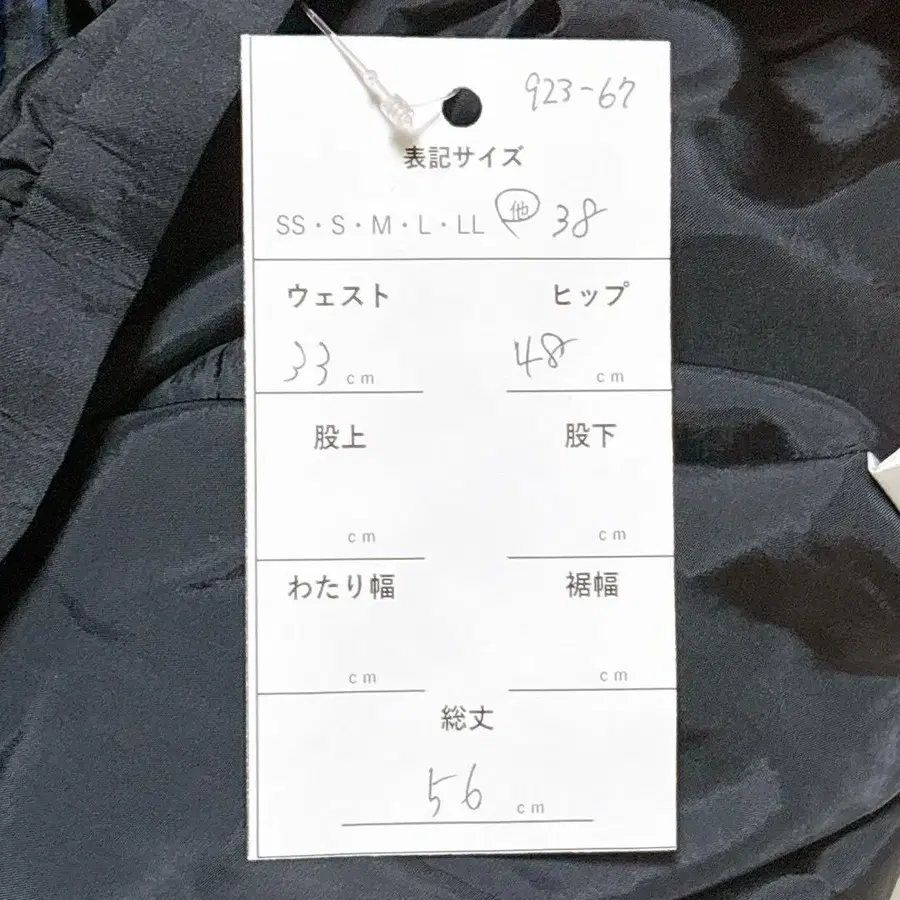 923-67
表記サイズ
SS・S・M・L・LL 他 38
ウェスト ヒップ
33 cm 48 cm
股上 股下
cm cm
わたり幅 裾幅
cm cm
総丈
56 cm